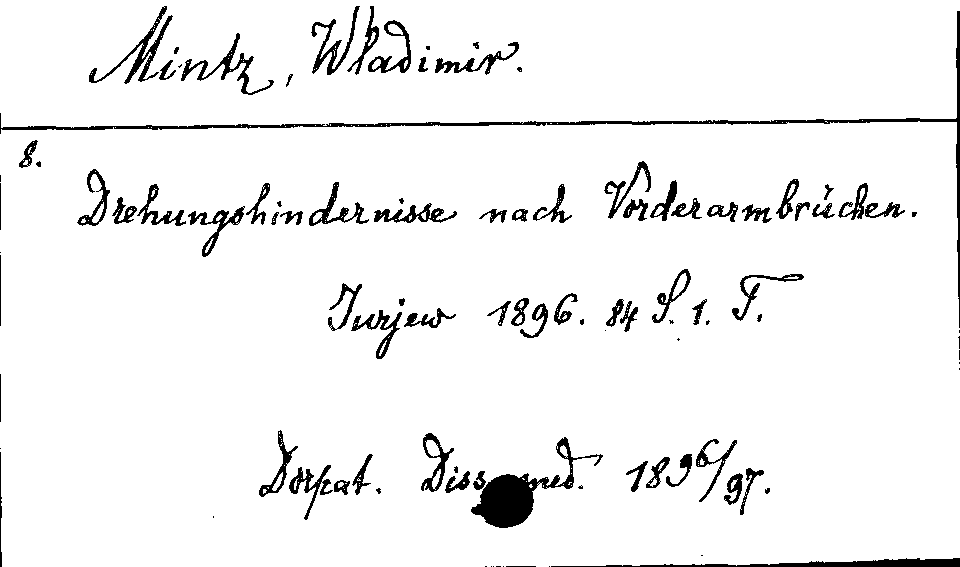 Mintz, Wladimir.
8.
Drehungshindernisse nach Vorderarmbrüchen.
Jurjew 1896. 84 S. 1. T.
Dorpat. Diss. med. 1896/97.